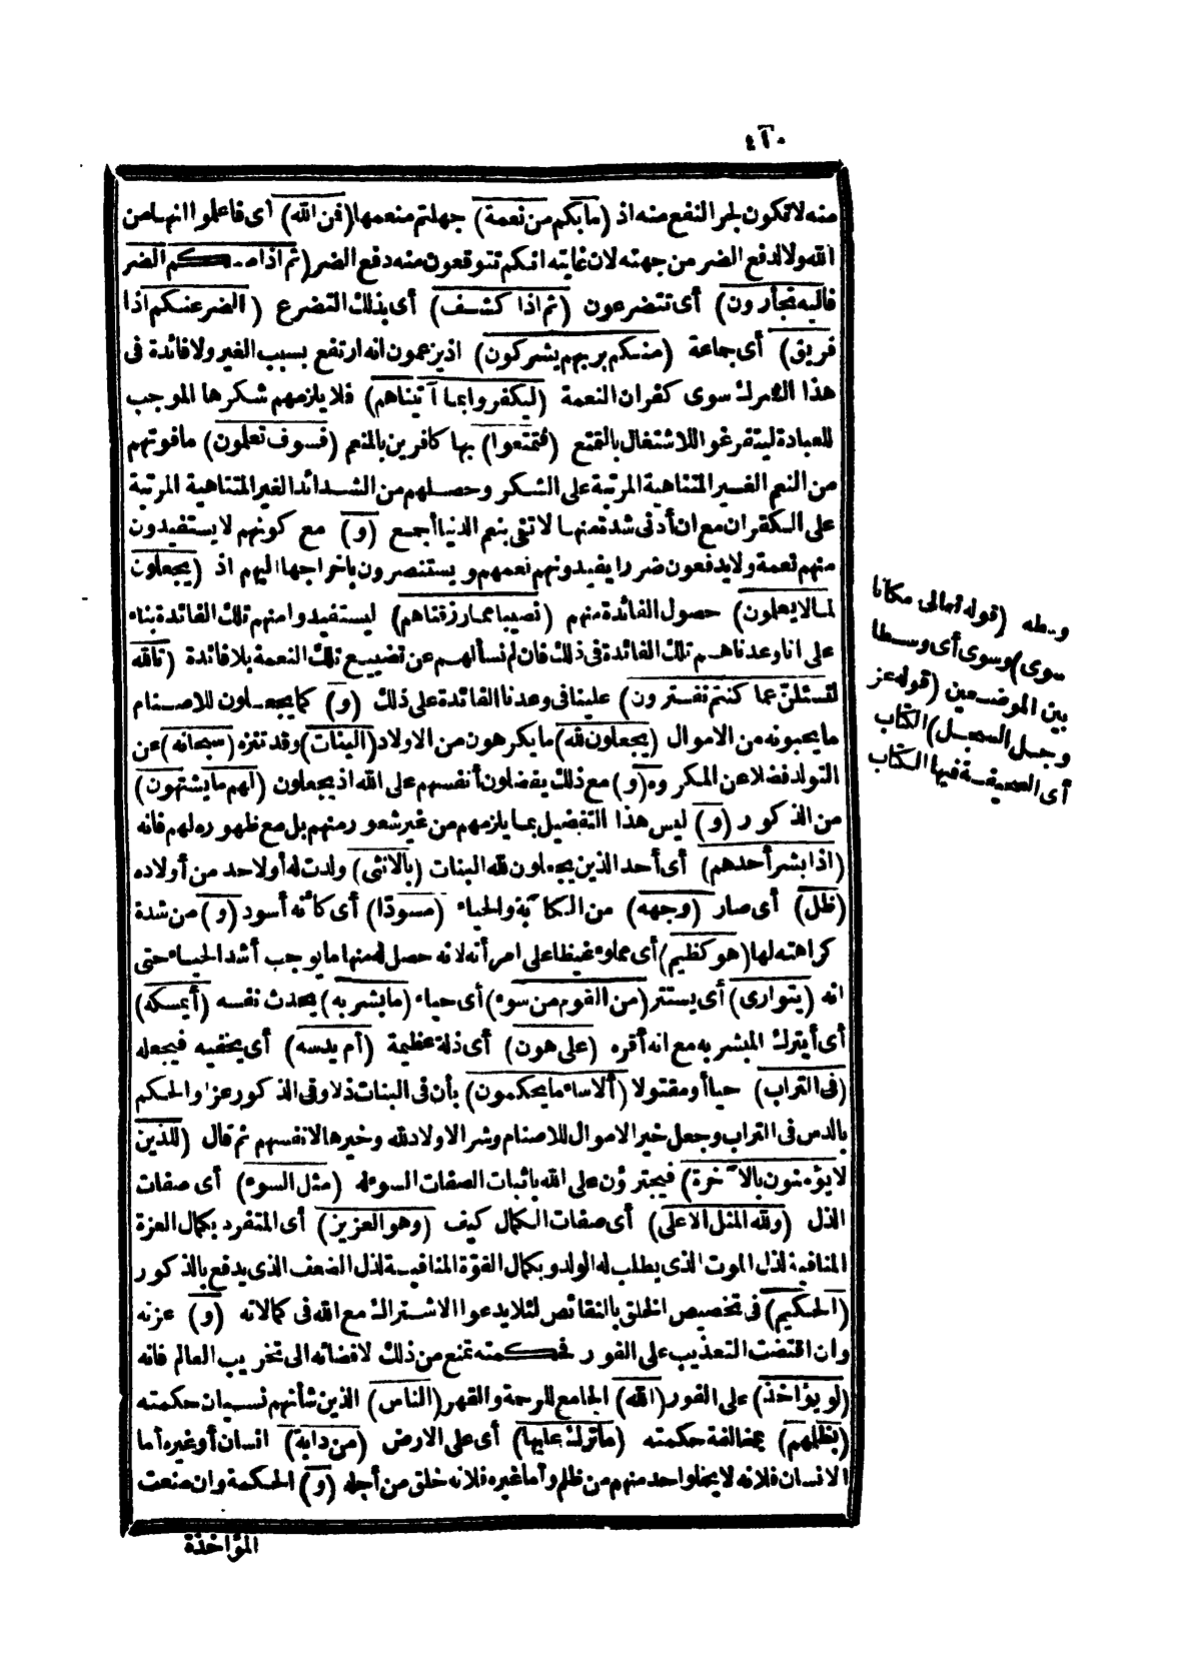 ٤١٠
منه لا تكون لجر النفع منه اذ (مابكم من نعمة) جهلتم منعمها (فمن الله) أى فاعلموا انها من
الله ولا لدفع الضر من جهته لان غايته انكم تتوقعون منه دفع الضر (ثم اذا مسكم الضر
فاليه تجأرون) أى تتضرعون (ثم اذا كشف) أى بذلك التضرع (الضر عنكم اذا
فريق) أى جماعة (منكم بربهم يشركون) اذ يزعمون انه ارتفع بسبب الغير ولا فائدة فى
هذا الشرك سوى كفران النعمة (ليكفروا بما آتيناهم) فلا يلزمهم شكرها الموجب
للعبادة ليتفرغوا للاشتغال بالتمتع (فتمتعوا) بها كافرين بالمنعم (فسوف تعلمون) مافوتهم
من النعم الغير المتناهية المرتبة على الشكر وحصلهم من الشدائد الغير المتناهية المرتبة
على الكفران مع ان أدنى شدة منها لا تفى بنعم الدنيا أجمع (و) مع كونهم لا يستفيدون
منهم نعمة ولا يدفعون ضررا يفيدونهم نعمهم ويستنصرون باخراجها اليهم اذ (يجعلون
لما لا يعلمون) حصول الفائدة منهم (نصيبا مما رزقناهم) ليستفيدوا منهم تلك الفائدة بناء
على انا وعدناهم تلك الفائدة فى ذلك فان لم نسألهم عن تضييع تلك النعمة بلا فائدة (تالله
لتسئلن عما كنتم تفترون) علينا فى وعدنا الفائدة على ذلك (و) كما يجعلون للاصنام
ما يحبونه من الاموال (يجعلون لله) ما يكرهون من الاولاد (البنات) وقد تنزه (سبحانه) عن
التولد فضلا عن المكروه (و) مع ذلك يفضلون أنفسهم على الله اذ يجعلون (لهم ما يشتهون)
من الذكور (و) ليس هذا التفضيل بما يلزمهم من غير شعور منهم بل مع ظهوره لهم فانه
(اذا بشر أحدهم) أى أحد الذين يجعلون لله البنات (بالانثى) ولدت له أولاحد من أولاده
(ظل) أى صار (وجهه) من الكآبة والحياء (مسودا) أى كأنه أسود (و) من شدة
كراهته لها (هو كظيم) أى مملوء غيظا على امرأته لانه حصل له منها ما يوجب أشد الحياء حتى
انه (يتوارى) أى يستتر (من القوم من سوء) أى حياء (ما بشر به) يحدث نفسه (أيمسكه)
أى أيترك المبشر به مع انه أقره (على هون) أى ذلة عظيمة (أم يدسه) أى يخفيه فيجعله
(فى التراب) حيا أو مقتولا (ألا ساء ما يحكمون) بأن فى البنات ذلا وفى الذكور عزا والحكم
بالدس فى التراب وجعل خير الاموال للاصنام وشر الاولاد لله وخيرها لانفسهم ثم قال (للذين
لا يؤمنون بالآخرة) فيجترؤن على الله باثبات الصفات السوء له (مثل السوء) أى صفات
الذل (ولله المثل الاعلى) أى صفات الكمال كيف (وهو العزيز) أى المتفرد بكمال العزة
المنافية لذل الموت الذى يطلب له الولد وبكمال القوّة المنافية لذل الضعف الذى يدفع بالذكور
(الحكيم) فى تخصيص الخلق بالنقائص لئلا يدعوا الاشتراك مع الله فى كمالاته (و) عزته
وان اقتضت التعذيب على الفور فحكمته تمنع من ذلك لافضائه الى تخريب العالم فانه
(لو يؤاخذ) على الفور (الله) الجامع للرحمة والقهر (الناس) الذين شأنهم نسيان حكمته
(بظلمهم) بمخالفة حكمته (ما ترك عليها) أى على الارض (من دابة) انسان أو غيره أما
الانسان فلانه لا يخلوا واحد منهم من ظلم وأما غيره فلانه خلق من أجله (و) الحكمة وان منعت
المؤاخذة
وسطه (قوله تعالى مكانا
سوى) وسوى أى وسطا
بين الموضعين (قوله عز
وجل السجل) الكتاب
أى الصحيفة فيها الكتاب